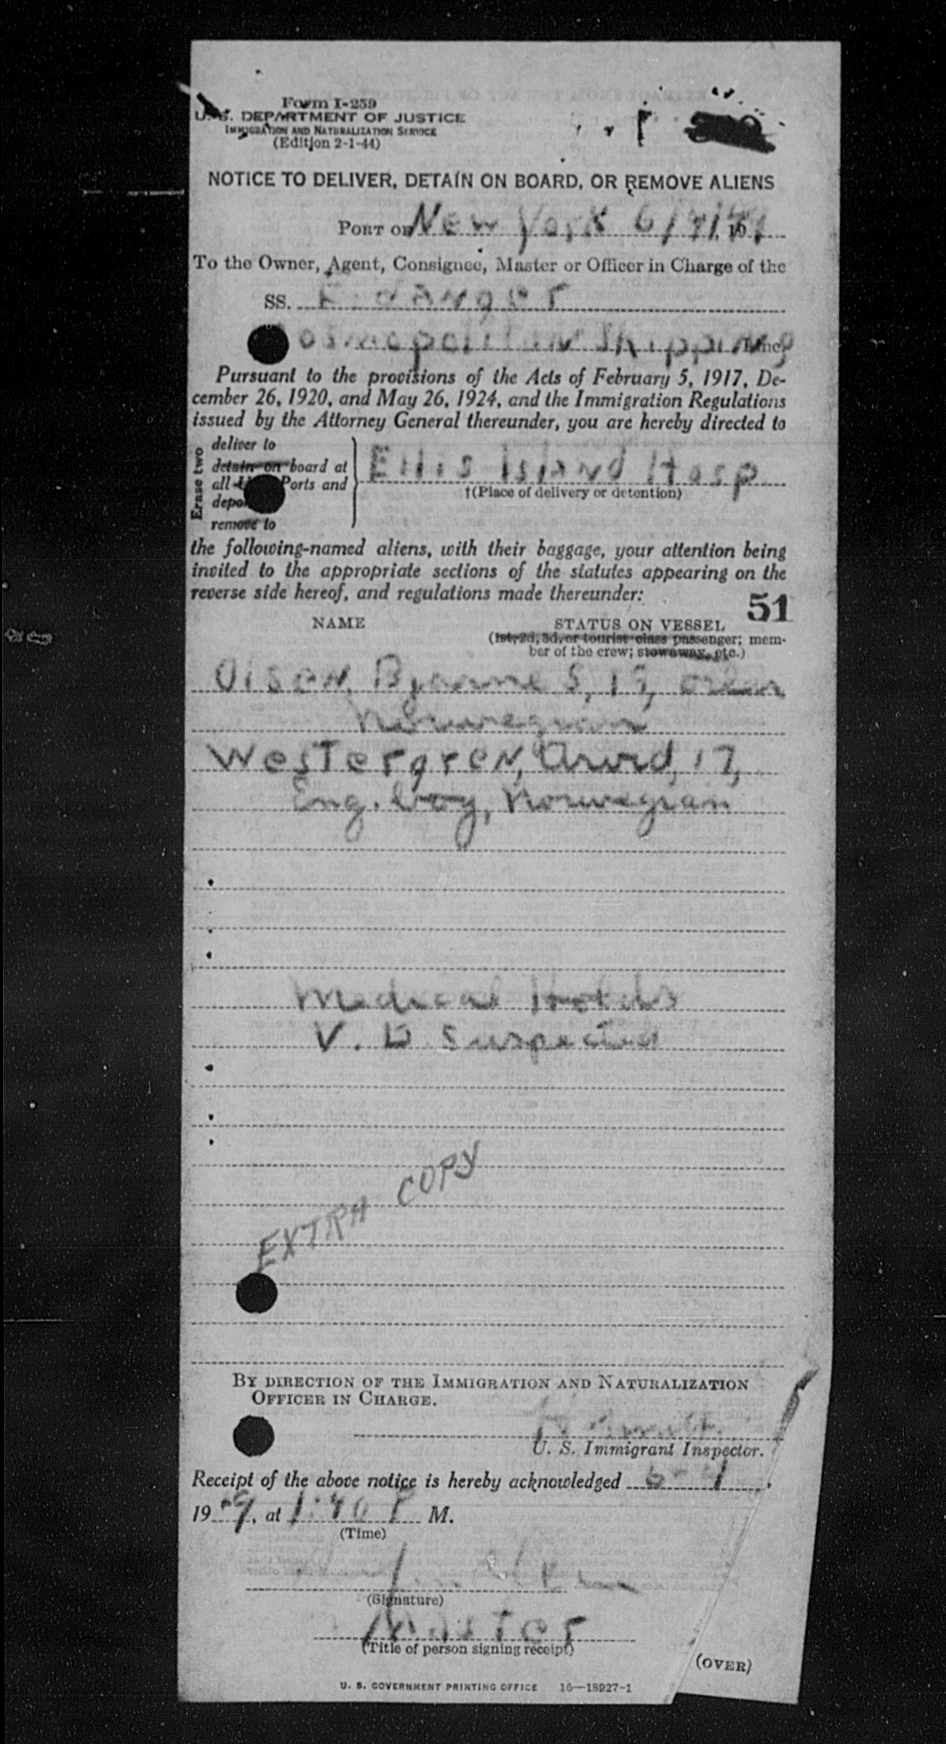 Form I-259
U. S. DEPARTMENT OF JUSTICE
IMMIGRATION AND NATURALIZATION SERVICE
(Edition 2-1-44)
NOTICE TO DELIVER, DETAIN ON BOARD, OR REMOVE ALIENS
PORT OF New York 6/
To the Owner, Agent, Consignee, Master or Officer in Charge of the
SS. Fidanger
Cosmopolitan Shipping Line,
Pursuant to the provisions of the Acts of February 5, 1917, De-
cember 26, 1920, and May 26, 1924, and the Immigration Regulations
issued by the Attorney General thereunder, you are hereby directed to
Erase two
deliver to
detain on board at
all Ports and
remove to
Ellis Island Hosp
†(Place of delivery or detention)
the following-named aliens, with their baggage, your attention being
invited to the appropriate sections of the statutes appearing on the
reverse side hereof, and regulations made thereunder:
51
NAME STATUS ON VESSEL
(1st, 2d, 3d, or tourist class passenger; mem-
ber of the crew; stowaway, etc.)
Olsen, Bjarne S, 19,
Norwegian
Westergren, Arvid, 17,
Eng. boy, Norwegian
Medical Holds
V. D Suspected
EXTRA COPY
BY DIRECTION OF THE IMMIGRATION AND NATURALIZATION
OFFICER IN CHARGE.
U. S. Immigrant Inspector.
Receipt of the above notice is hereby acknowledged 6-
19 , at 1:40 P M.
(Time)
(Signature)
Master
(Title of person signing receipt)
(OVER)
U. S. GOVERNMENT PRINTING OFFICE 16—18927-1